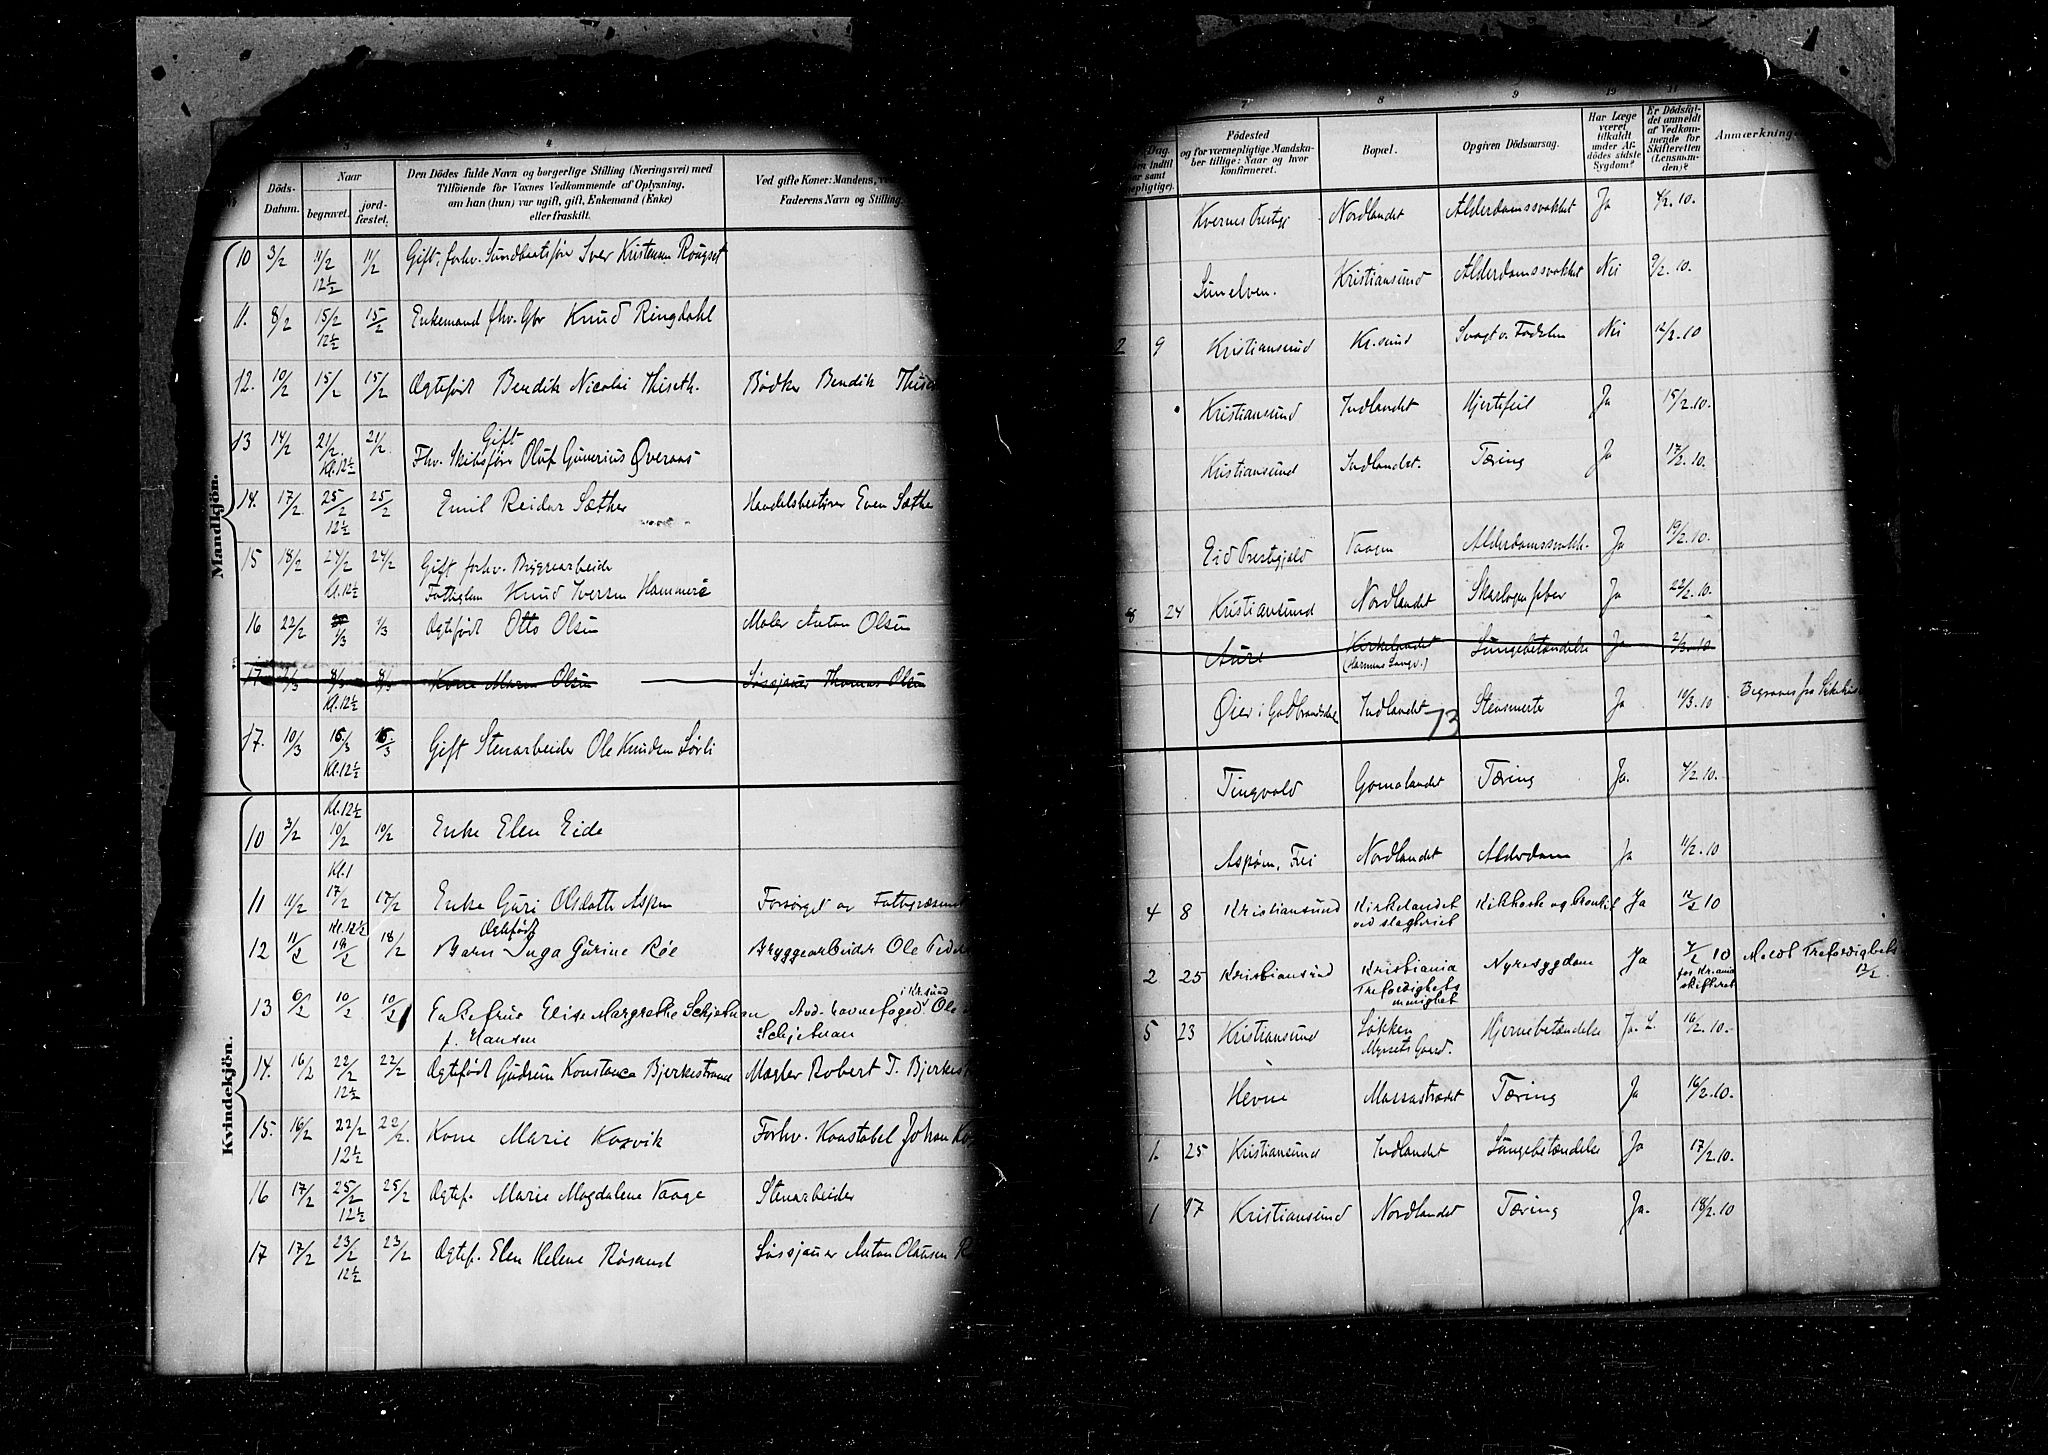 3
4
Döds-
Datum.
Naar
begravet.
jord-
fæstet.
Den Dödes fulde Navn og borgerlige Stilling (Næringsvei) med
Tilföiende for Voxnes Vedkommende af Oplysning,
om han (hun) var ugift, gift, Enkemand (Enke)
eller fraskilt.
Ved gifte Koner: Mandens,
Faderens Navn og Stilling.
Mandkjön.
10 3/2 11/2 11/2 Gift, forhv. Sundbaatsför Iver Kristensen Rougset
12½
11. 8/2 15/2 15/2 Enkemand fhv. Gbr Knud Ringdahl
12½
12. 10/2 15/2 15/2 Ægtefødt Bendik Nicolai Thiseth. Bødker Bendik
Gift
13 14/2 21/2 21/2 Fhv. Skibsfører Oluf Gunerius Øveraas
Kl. 12½
14. 17/2 25/2 25/2 Emil Reidar Sæther Handelsbestyrer Even Sæthe
12½
15 18/2 24/2 24/2 Gift forhv. Bryggearbeide
Kl. 12½ Fattiglem Knud Iversen Hammerö
16 22/2 1/3 1/3 Ægtefødt Otto Olsen Maler Anton Olsen
17 2/3 8/3 8/3 Kone Maren Olsen Løssjauer Thomas Olsen
Kl. 12½
17. 10/3 15/3 15/3 Gift Stenarbeider Ole Knudsen Sørli
Kl. 12½
Kvindekjön.
Kl. 12½
10 3/2 10/2 10/2 Enke Elen Eide
Kl. 1
11 11/2 17/2 17/2 Enke Guri Olsdatter Aspen Forsørget av Fattigvæsenet
Kl. 12½ Ægtefødt
12 11/2 18/2 18/2 Barn Inga Gurine Røe Bryggearbeider Ole Peder
i Kr.sund
13 6/2 10/2 10/2 Enkefrue Elise Margrethe Schjetnan Avd. havnefoged Ole
f. Hansen Schjetnan
14. 16/2 22/2 22/2 Ægtefødt Gudrun Konstance Bjerkestrand Mægler Robert T. Bjerkes
12½
15. 16/2 22/2 22/2. Kone Marie Kosvik Forhv. Konstabel Johan
12½
16 17/2 25/2 25/2 Ægtef. Marie Magdalene Vaage Stenarbeider
12½
17 17/2 23/2 23/2 Ægtef. Elen Helene Røsand Løssjauer Anton Olausen
12½
7
8
9
10
11
Dag.
Födested
og for værnepligtige Mandska-
ber tillige: Naar og hvor
konfirmeret.
Bopæl.
Opgiven Dödsaarsag.
Har Læge
været
tilkaldt
under Af-
dödes sidste
Sygdom?
Er Dödsfal-
det anmeldt
af Vedkom-
mende for
Skifteretten
(Lensman-
den)?
Anmærkninge
Kvernes Prestgj Nordlandet Alderdomssvakhet Ja 4/2. 10.
Sunelven. Kristiansund Alderdomssvakhet Nei 9/2. 10.
2 9 Kristiansund Kr.sund Svagt v. Fødslen Nei 12/2. 10
Kristiansund Indlandet Hjertefeil Ja 15/2. 10.
Kristiansund Indlandet. Tæring Ja 17/2. 10.
Eid Prestgjeld Vaagen Alderdomssvakh. Ja 19/2. 10.
8 24 Kristiansund Nordlandet Skarlagensfeber Ja 22/2. 10.
Aure Kirkelandet Lungebetændelse Ja 2/3. 10
Øier i Gudbrandsdal Indlandet Stensmerte Ja 10/3. 10 Begraves fra Sykehus
73
Tingvold Gomalandet Tæring Ja. 4/2. 10.
Aspøen, Frei Nordlandet Alderdom Ja 11/2. 10
4 8 Kristiansund Kirkelandet Kikhoste og Bronkit Ja 12/2 10
ved slagteriet
2 25 Kristiansund Kristiania Nyresygdom Ja 7/2 10
Trefoldigheds for Kr.ania
menighet skifteret
12/2.
5 23 Kristiansund Løkken Hjernebetændelse Ja. L. 16/2. 10.
Myrsets Gaard.
Hevne Massastrædet Tæring Ja 16/2. 10.
1. 25 Kristiansund Indlandet Lungebetændelse Ja 17/2. 10.
1 17 Kristiansund Nordlandet Tæring Ja. 18/2. 10